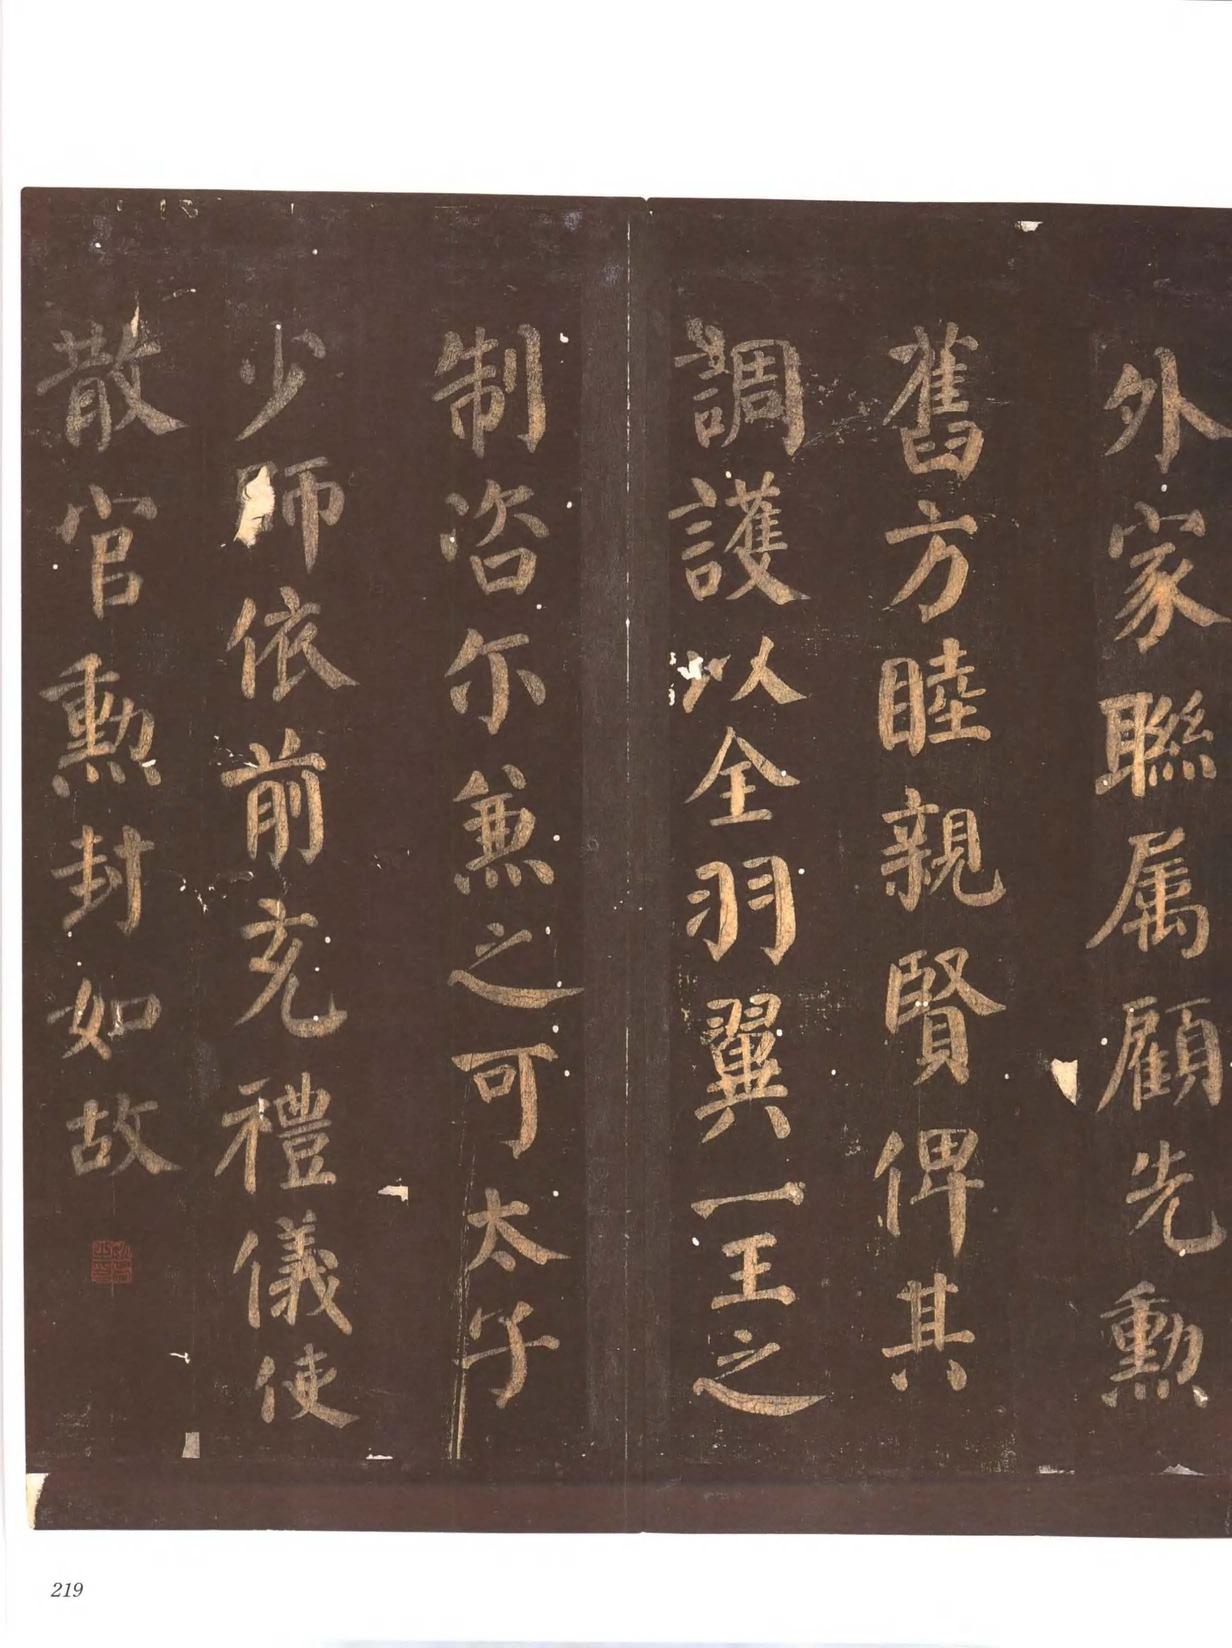 外家聯属顧先勲
舊方睦親賢俾其
調護以全羽翼一王之
制咨尓兼之可太子
少師依前充禮儀使
散官勲封如故
219